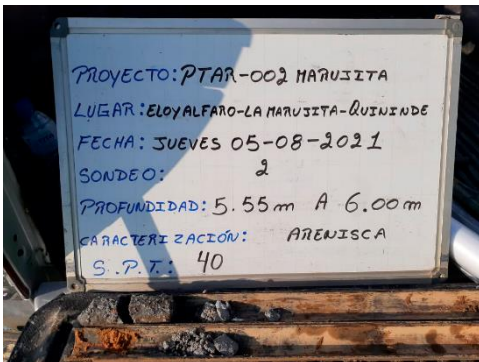 PROYECTO: PTAR-002 MARUJITA
LUGAR: ELOY ALFARO-LA MARUJITA-QUININDE
FECHA: JUEVES 05-08-2021
SONDEO: 2
PROFUNDIDAD: 5.55m A 6.00m
CARACTERIZACIÓN: ARENISCA
S.P.T.: 40